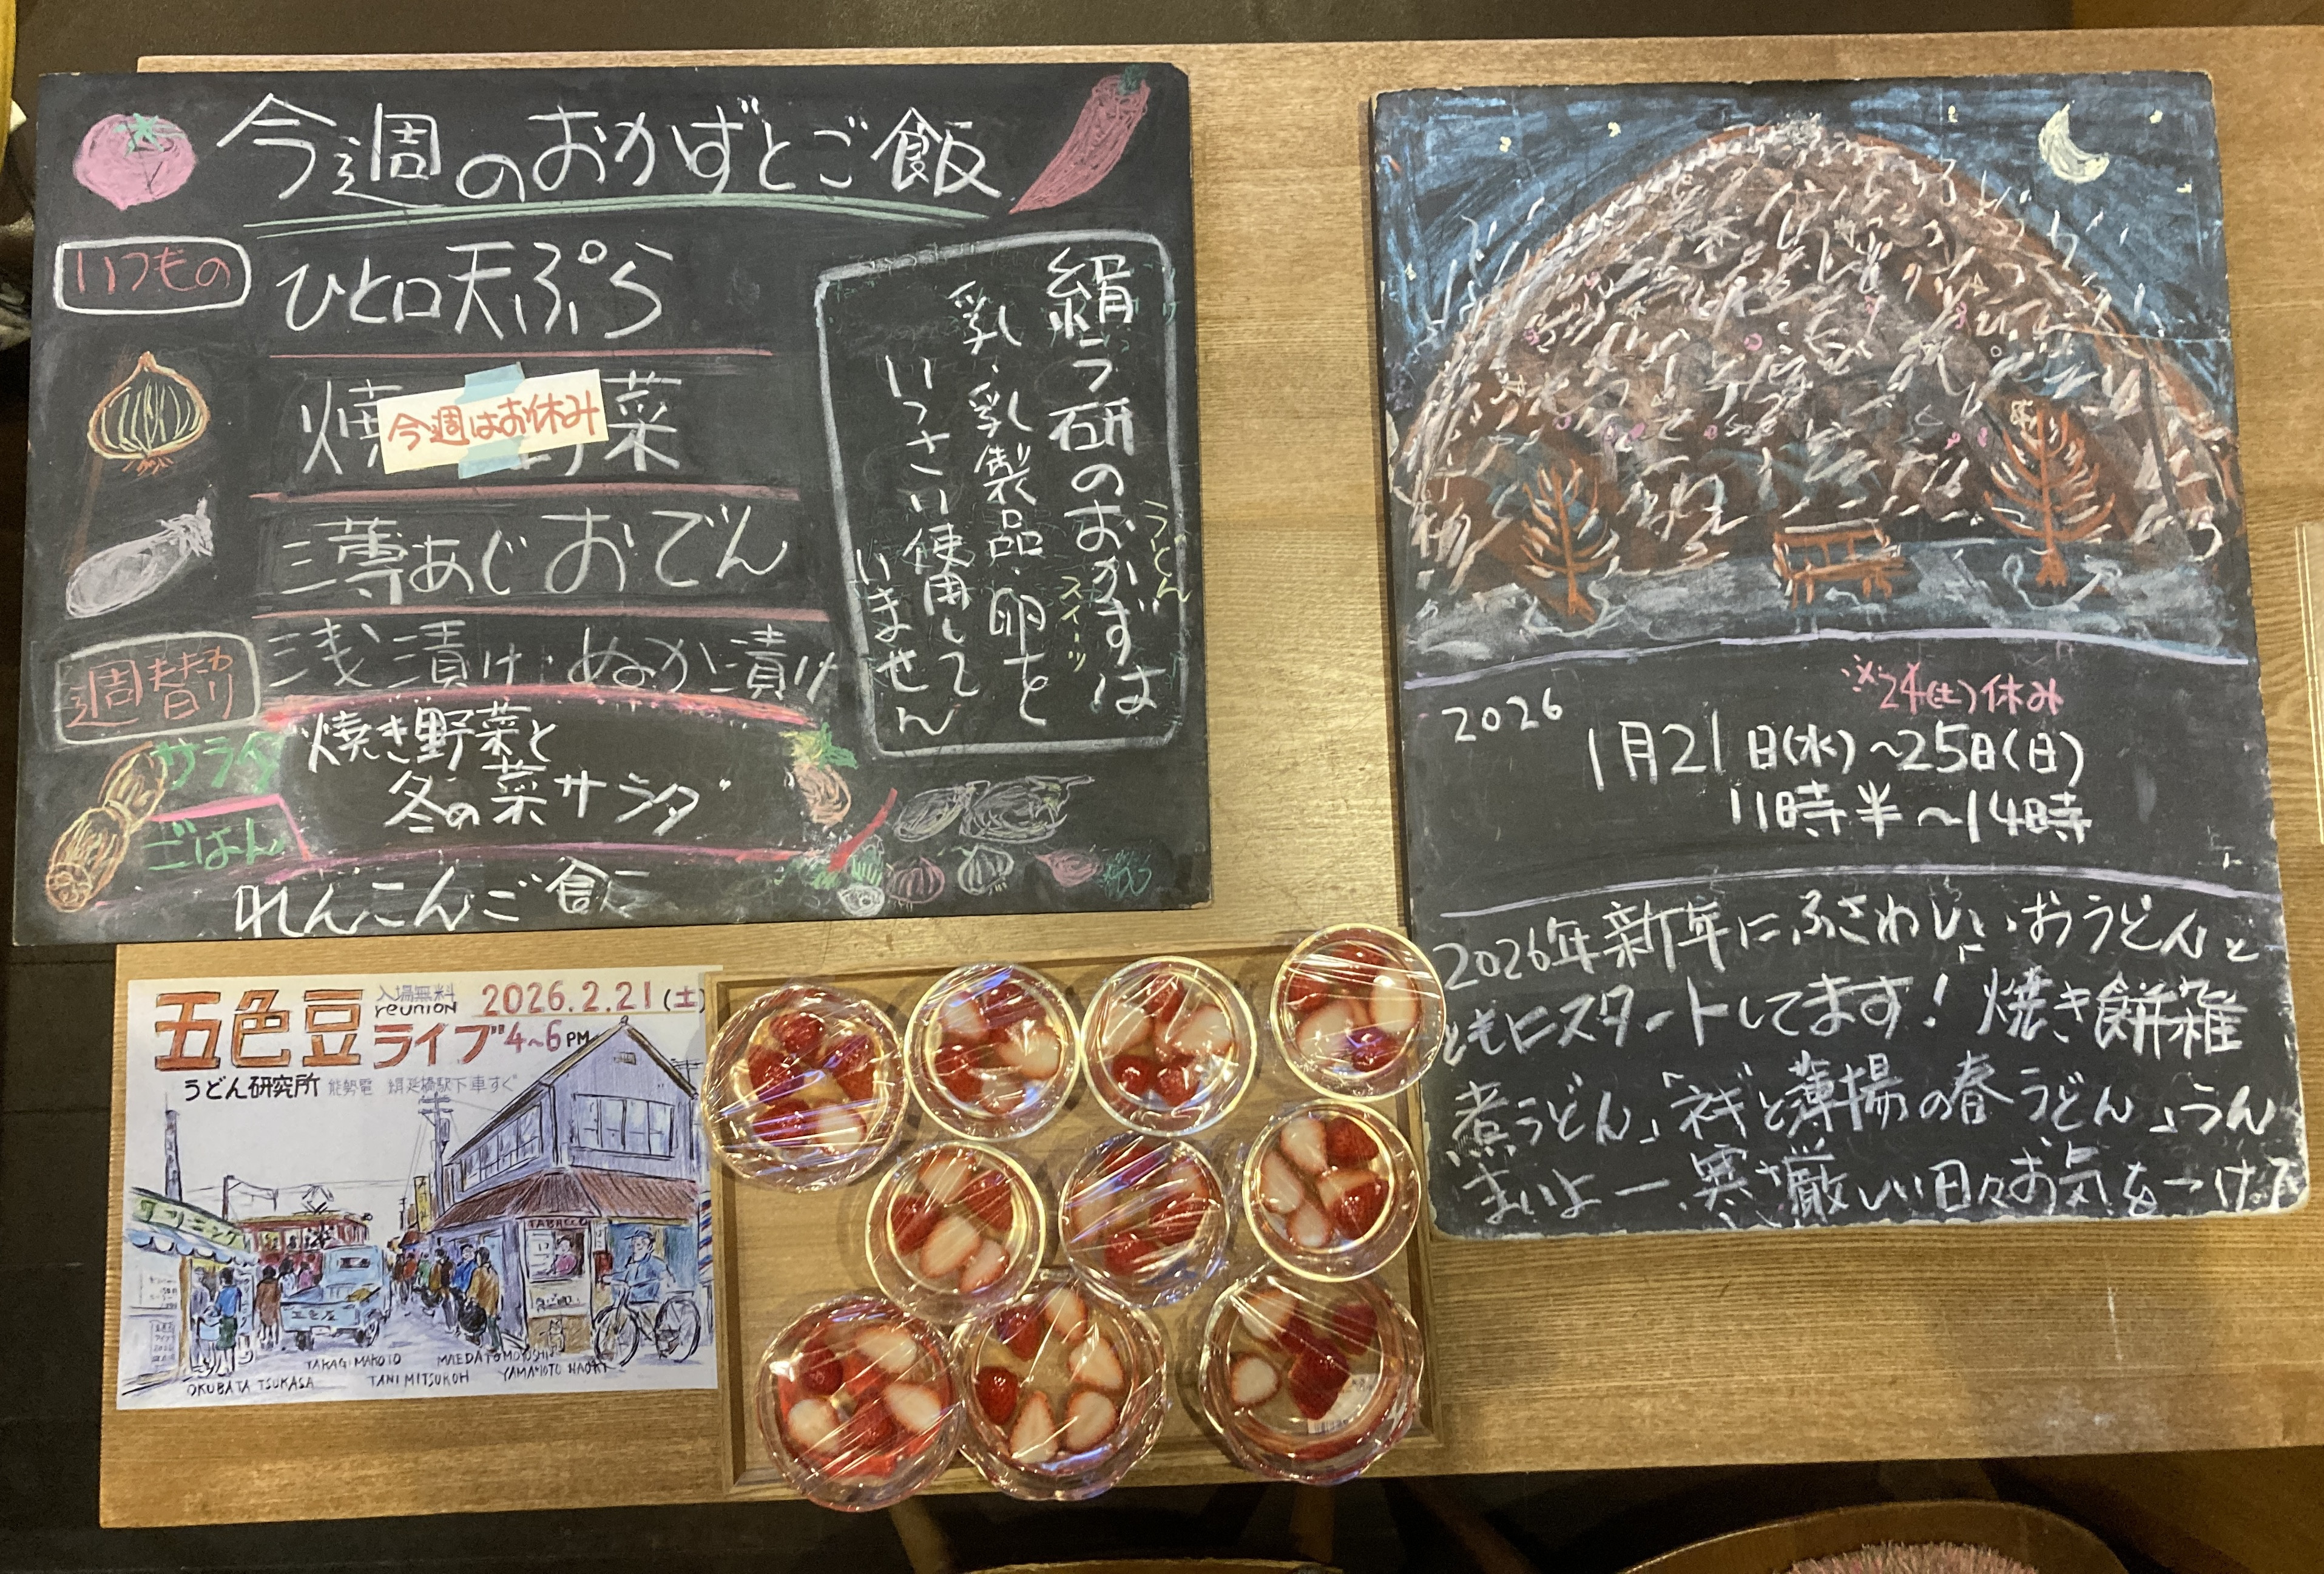 今週のおかずとご飯
いつもの
ひと口天ぷら
焼 菜
今週はお休み
薄あじおでん
浅漬け・ぬか漬け
週替り
かわり
サラダ
焼き野菜と
冬の菜サラダ
ごはん
れんこんご飯
絹う研のおかずは
うどん
スイーツ
乳、乳製品・卵を
いっさい使用して
いません
2026
※24(土)休み
1月21日(水)~25日(日)
11時半~14時
2026年新年にふさわしい、おうどんと
ともにスタートしてます!焼き餅雑
煮うどん」「ネギと薄揚の春うどん」うん
まいよー 寒さ厳しい日々お気をつけ下
五色豆
入場無料
reunion
2026.2.21(土)
ライブ4~6PM
うどん研究所 能勢電 絹延橋駅下車すぐ
クリーニング
TABACCO
五色屋
TAKAGI MAKOTO
MAEDA TOMOYOSHI
OKUBATA TSUKASA
TANI MITSUKOH
YAMAMOTO NAOKI